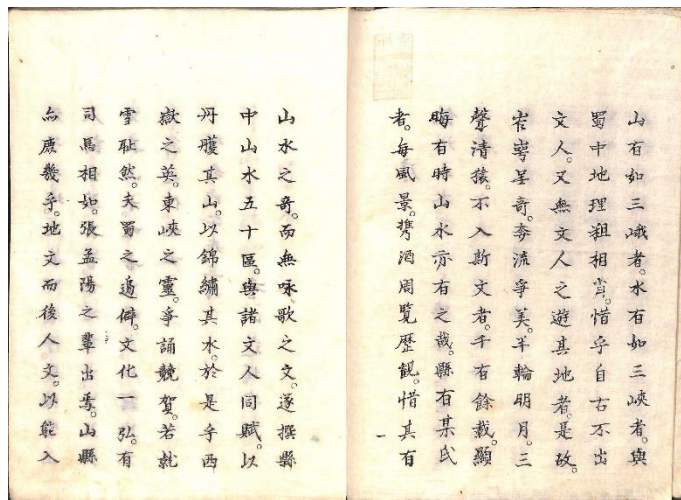 山有如三峨者。水有如三峽者。與
蜀中地理粗相肖。惜乎自古不出
文人。又無文人之遊其地者。是故。
岩崿呈奇。奔流寧美。半輪明月。三
聲清猿。不入斯文者。千有餘載。顯
晦有時山水亦有之哉。縣有某氏
者。每風景。携酒周覧歷觀。惜其有
山水之奇。而無咏歌之文。遂撰縣
中山水五十區。與諸文人同賦。以
丹雘其山。以錦繡其水。於是乎西
嶽之英。東峽之靈。爭誦競賀。若就
雪耻然。夫蜀之邊僻。文化一弘。有
司馬相如。張孟陽之輩出焉。山縣
亦庶幾乎。地文而後人文。以能入